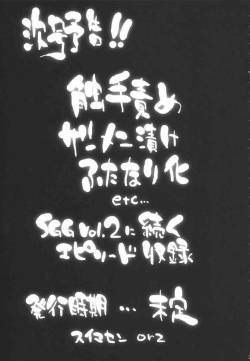 次号予告!!
触手責め
ザーメン漬け
ふたなり化
etc...
SGG Vol.2に続く
エピソード収録
発行時期 … 未定
スイマセン orz